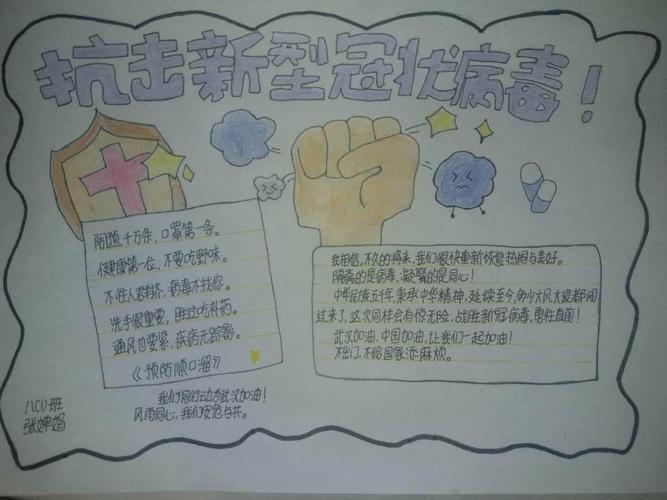 抗击新型冠状病毒！
防随千万条，口罩第一条。
健康第一位，不要吃野味。
不住人群挤，病毒不找你。
洗手很重要，胜过吃补药。
通风也要紧，疾病无踪影。
《预防顺口溜》
我们同行动为武汉加油！
风雨同心，我们安危与共。
我相信，不久的将来，我们很快重新恢复热闹与美好。
隔离的是病毒，凝聚的是同心！
中华民族五千年，秉承中华精神，延续至今，多少大风大浪都闯
过来了，这次同样会有惊无险，战胜新冠病毒，勇往直前！
武汉加油，中国加油，让我们一起加油！
不出门，不给国家添麻烦。
八(1)班
张婵娟